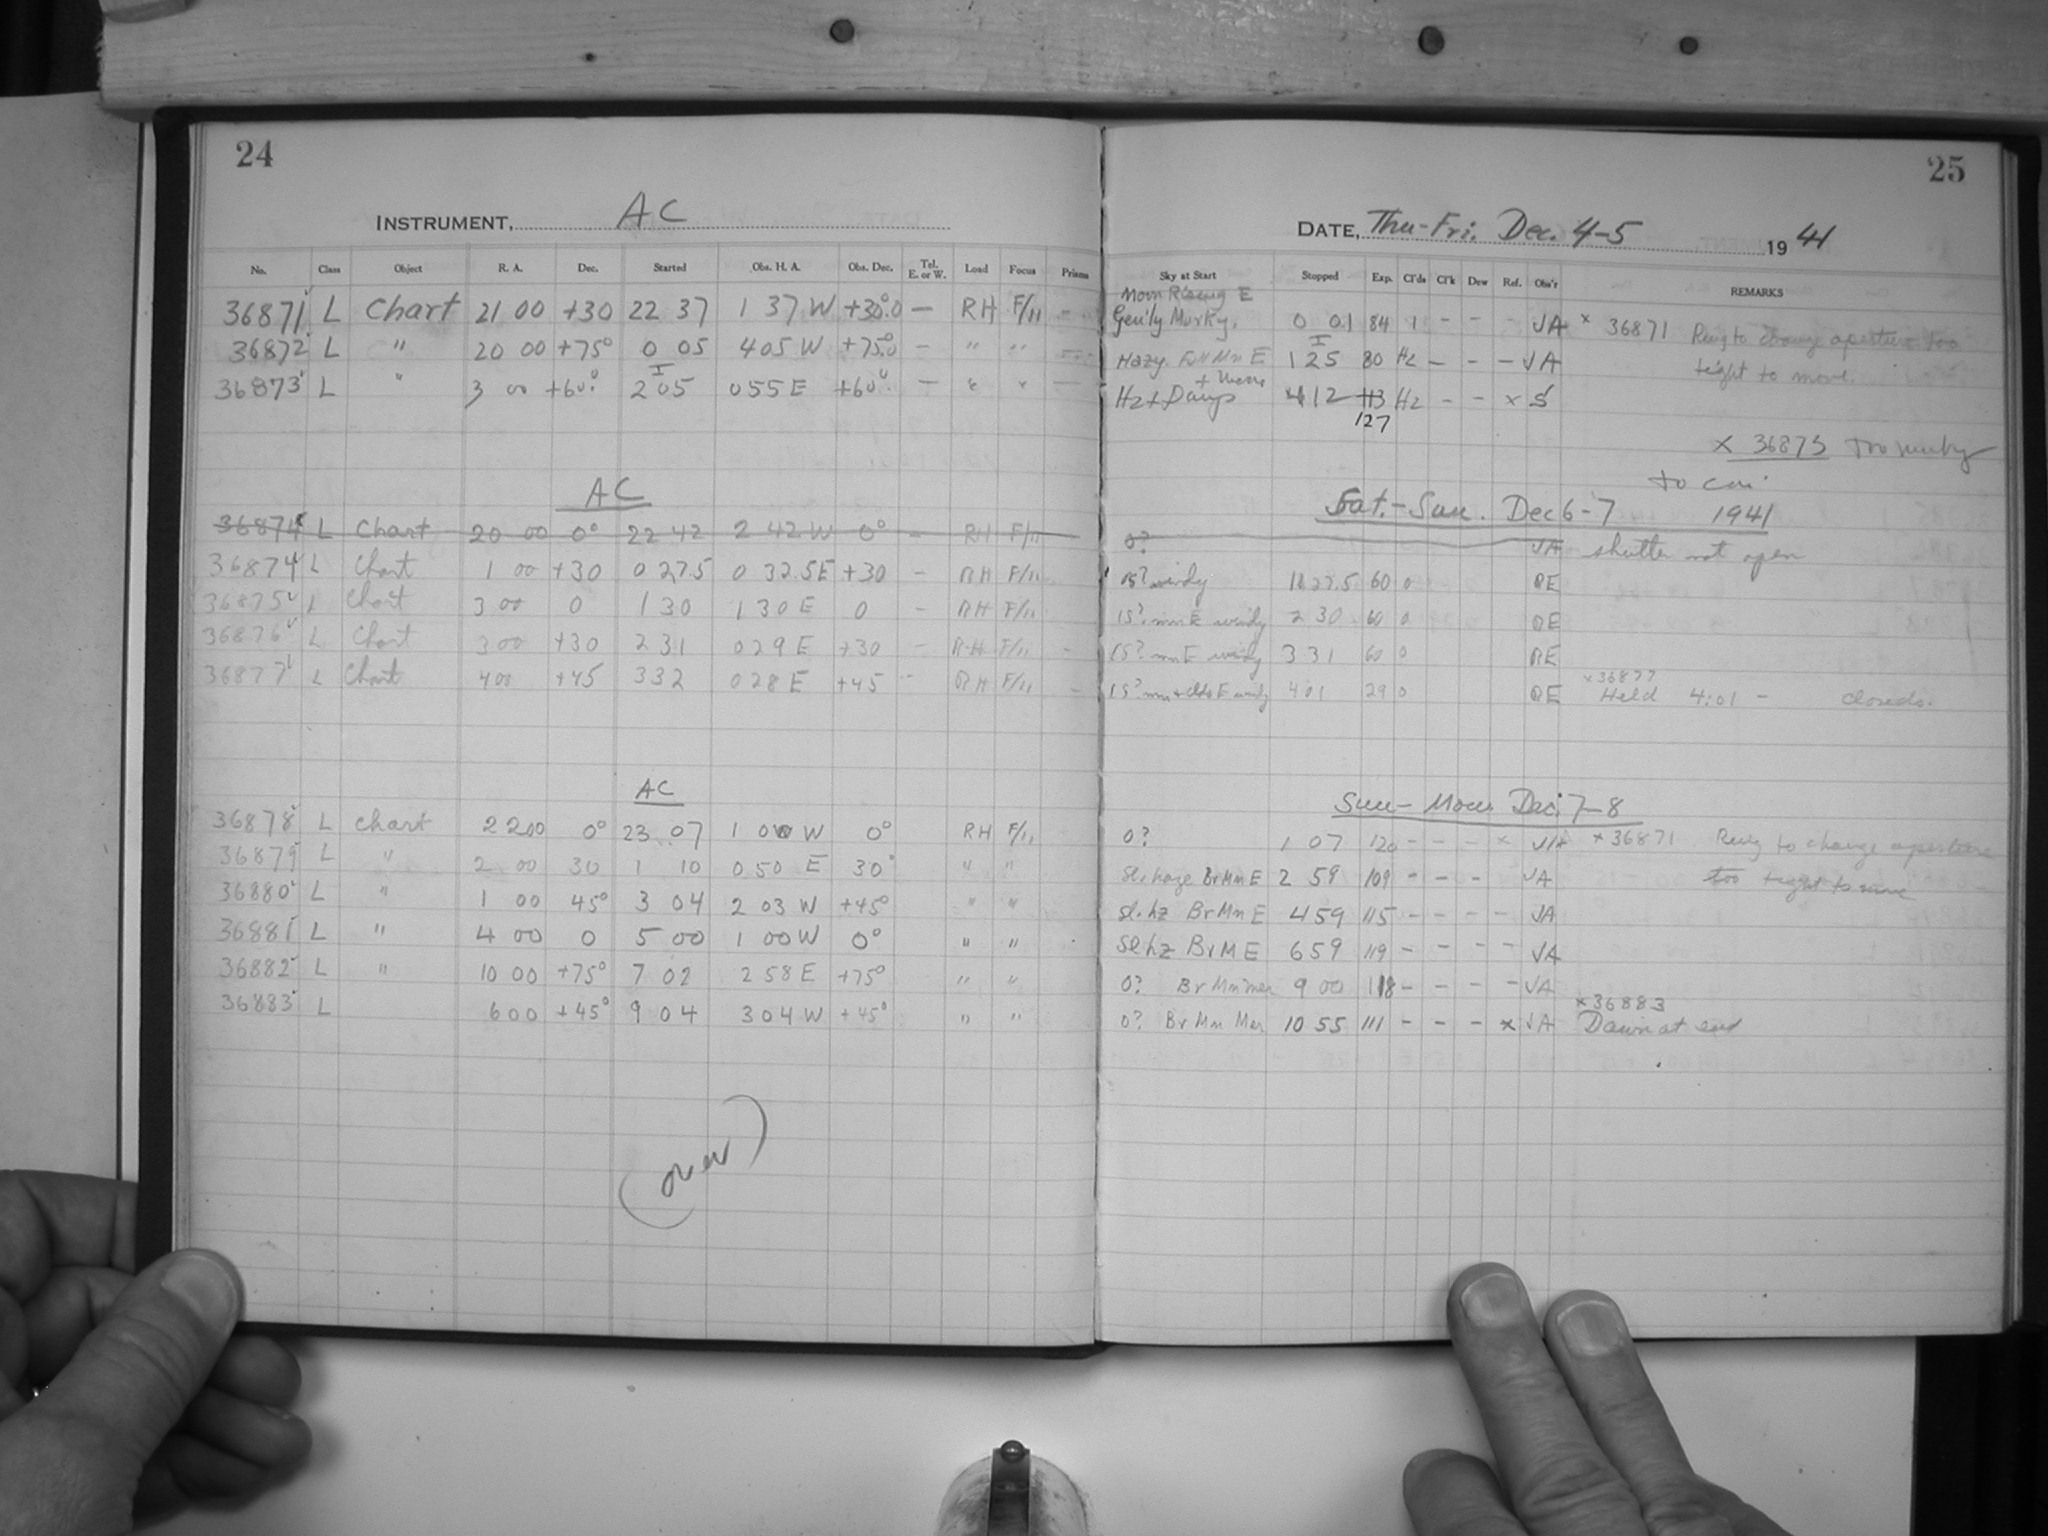 24
INSTRUMENT, AC
No. Class Object R. A. Dec. Started Obs. H. A. Obs. Dec. Tel. E. or W. Load Focus Prisms
36871 L Chart 21 00 +30 22 37 1 37 W +30°.0 — RH F/11 -
36872 L " 20 00 +75° 0 05 4 05 W +75°.0 — " "
36873 L " 3 00 +60° 2 05 0 55 E +60° — " " —
AC
36874 L Chart 20 00 0° 22 42 2 42 W 0° - RH F/11
36874 L Chart 1 00 +30 0 27.5 0 32.5 E +30 - RH F/11
36875 L Chart 3 00 0 1 30 1 30 E 0 - RH F/11
36876 L Chart 3 00 +30 2 31 0 29 E +30 - RH F/11 -
36877 L Chart 4 00 +45 3 32 0 28 E +45 - RH F/11 -
AC
36878 L Chart 22 00 0° 23 07 1 0 W 0° RH F/11
36879 L " 2 00 30 1 10 0 50 E 30° " "
36880 L " 1 00 45° 3 04 2 03 W +45° " "
36881 L " 4 00 0 5 00 1 00 W 0° " "
36882 L " 10 00 +75° 7 02 2 58 E +75° " "
36883 L 6 00 +45° 9 04 3 04 W +45° " "
(over)
25
DATE, Thu-Fri. Dec. 4-5 19 41
Sky at Start Stopped Exp. Cl'ds Cl'k Dew Ref. Obs'r REMARKS
Moon Rising E
Gen'ly Murky. 0 01 84 1 - - - JA × 36871 Ring to change aperture too
Hazy. Full Mn E 1 25 80 Hz - - - JA tight to move.
Hz + Damp 4 12 113 Hz - - × S
127
× 36873 Too murky
to
Sat.-Sun. Dec 6-7 1941
0? JA shutter not open
15? windy 27.5 60 0 RE
15? mn E windy 2 30 60 0 RE
15? mn E windy 3 31 60 0 RE
× 36877
15? mn + clds E windy 4 01 29 0 RE Held 4:01 - closed.
Sun- Mon. Dec. 7-8
0? 1 07 120 - - - × JA × 36871 Ring to change aperture
Sl. haze Br Mn E 2 59 109 - - - JA too tight to move
Sl. hz Br Mn E 4 59 115 - - - - JA
Sl hz Br M E 6 59 119 - - - - JA
0? Br Mn mer 9 00 118 - - - - JA
× 36883
0? Br Mn Mer 10 55 111 - - - × JA Dawn at end